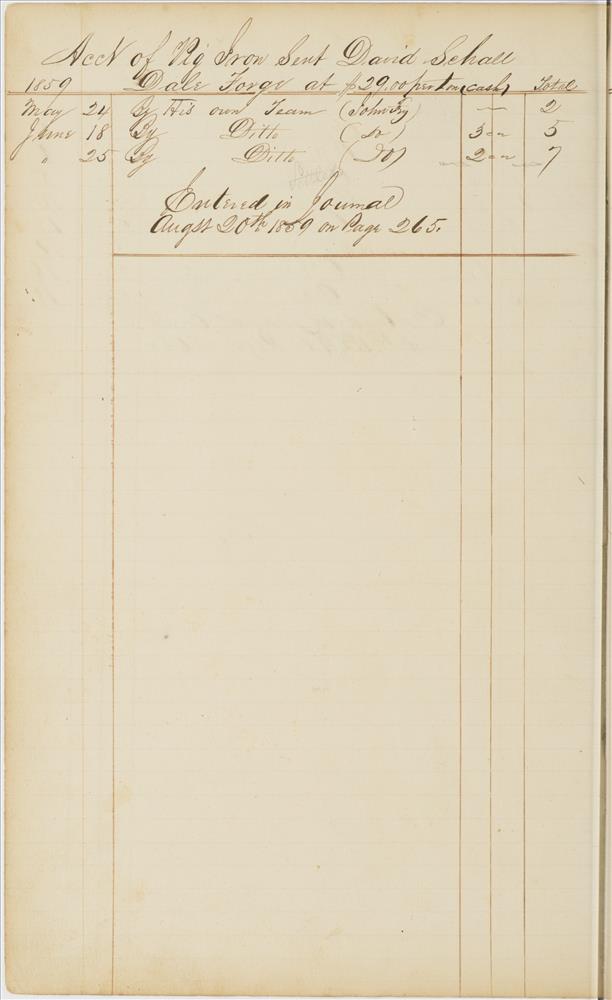 Acct of Pig Iron Sent David Schall
1859 Dale Forge at $29.00 per ton (cash) Total
May 24 By His own Team (John Fry) — 2
June 18 By Ditto (Do) 3 — 5
" 25 By Ditto (Do) 2 — 7
Entered in Journal
Augst 20th 1859 on Page 265.